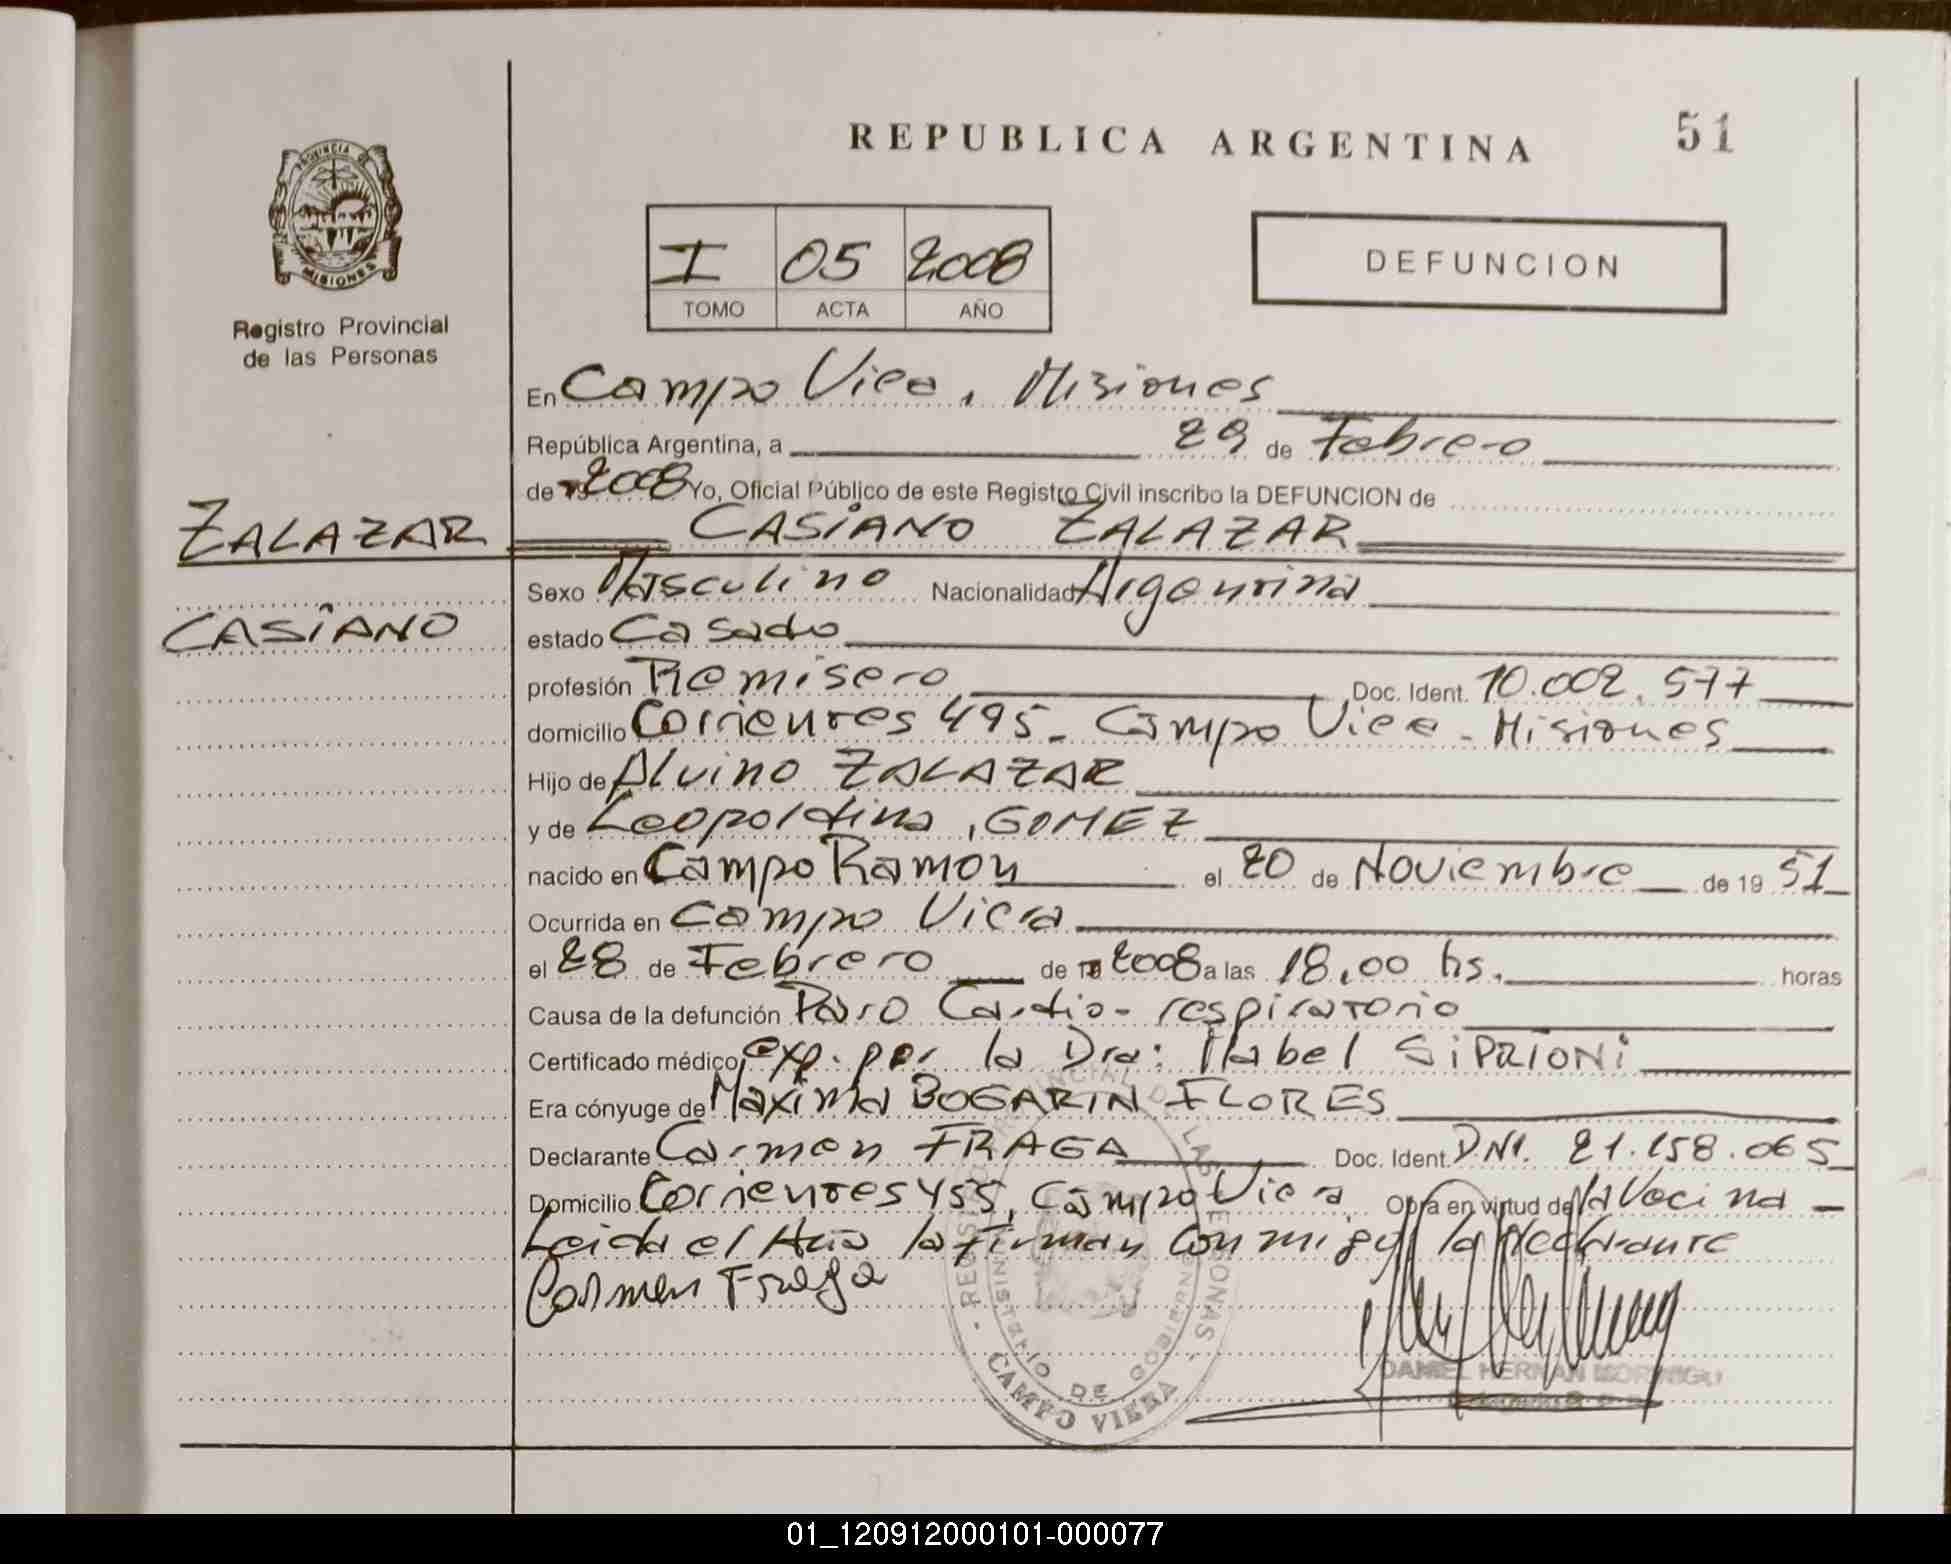 REPUBLICA ARGENTINA
51
PROVINCIA DE
MISIONES
Registro Provincial
de las Personas
I 05 2008
TOMO ACTA AÑO
DEFUNCION
En Campo Viera, Misiones
República Argentina, a 29 de Febrero
de 19 2008 Yo, Oficial Público de este Registro Civil inscribo la DEFUNCION de
ZALAZAR CASIANO ZALAZAR
Sexo Masculino Nacionalidad Argentina
CASIANO
estado Casado
profesión Remisero Doc. Ident. 10.002.577
domicilio Corrientes 495 - Campo Viera - Misiones
Hijo de Alvino ZALAZAR
y de Leopoldina, GOMEZ
nacido en Campo Ramon el 20 de Noviembre de 19 51
Ocurrida en Campo Viera
el 28 de Febrero de 2008 a las 18,00 hs. horas
Causa de la defunción Paro Cardio-respiratorio
Certificado médico exp. por la Dra: Mabel SIPRIONI
Era cónyuge de Maxima BOGARIN FLORES
Declarante Carmen FRAGA Doc. Ident. DNI. 21.158.065
Domicilio Corrientes 455, Campo Viera Obra en virtud de la Vecina -
Leida el Acta la firman conmigo la Declarante
Carmen Fraga
REGISTRO PROVINCIAL DE LAS PERSONAS
MINISTERIO DE GOBIERNO
CAMPO VIERA
DANIEL HERNAN MORINIGO
01_120912000101-000077